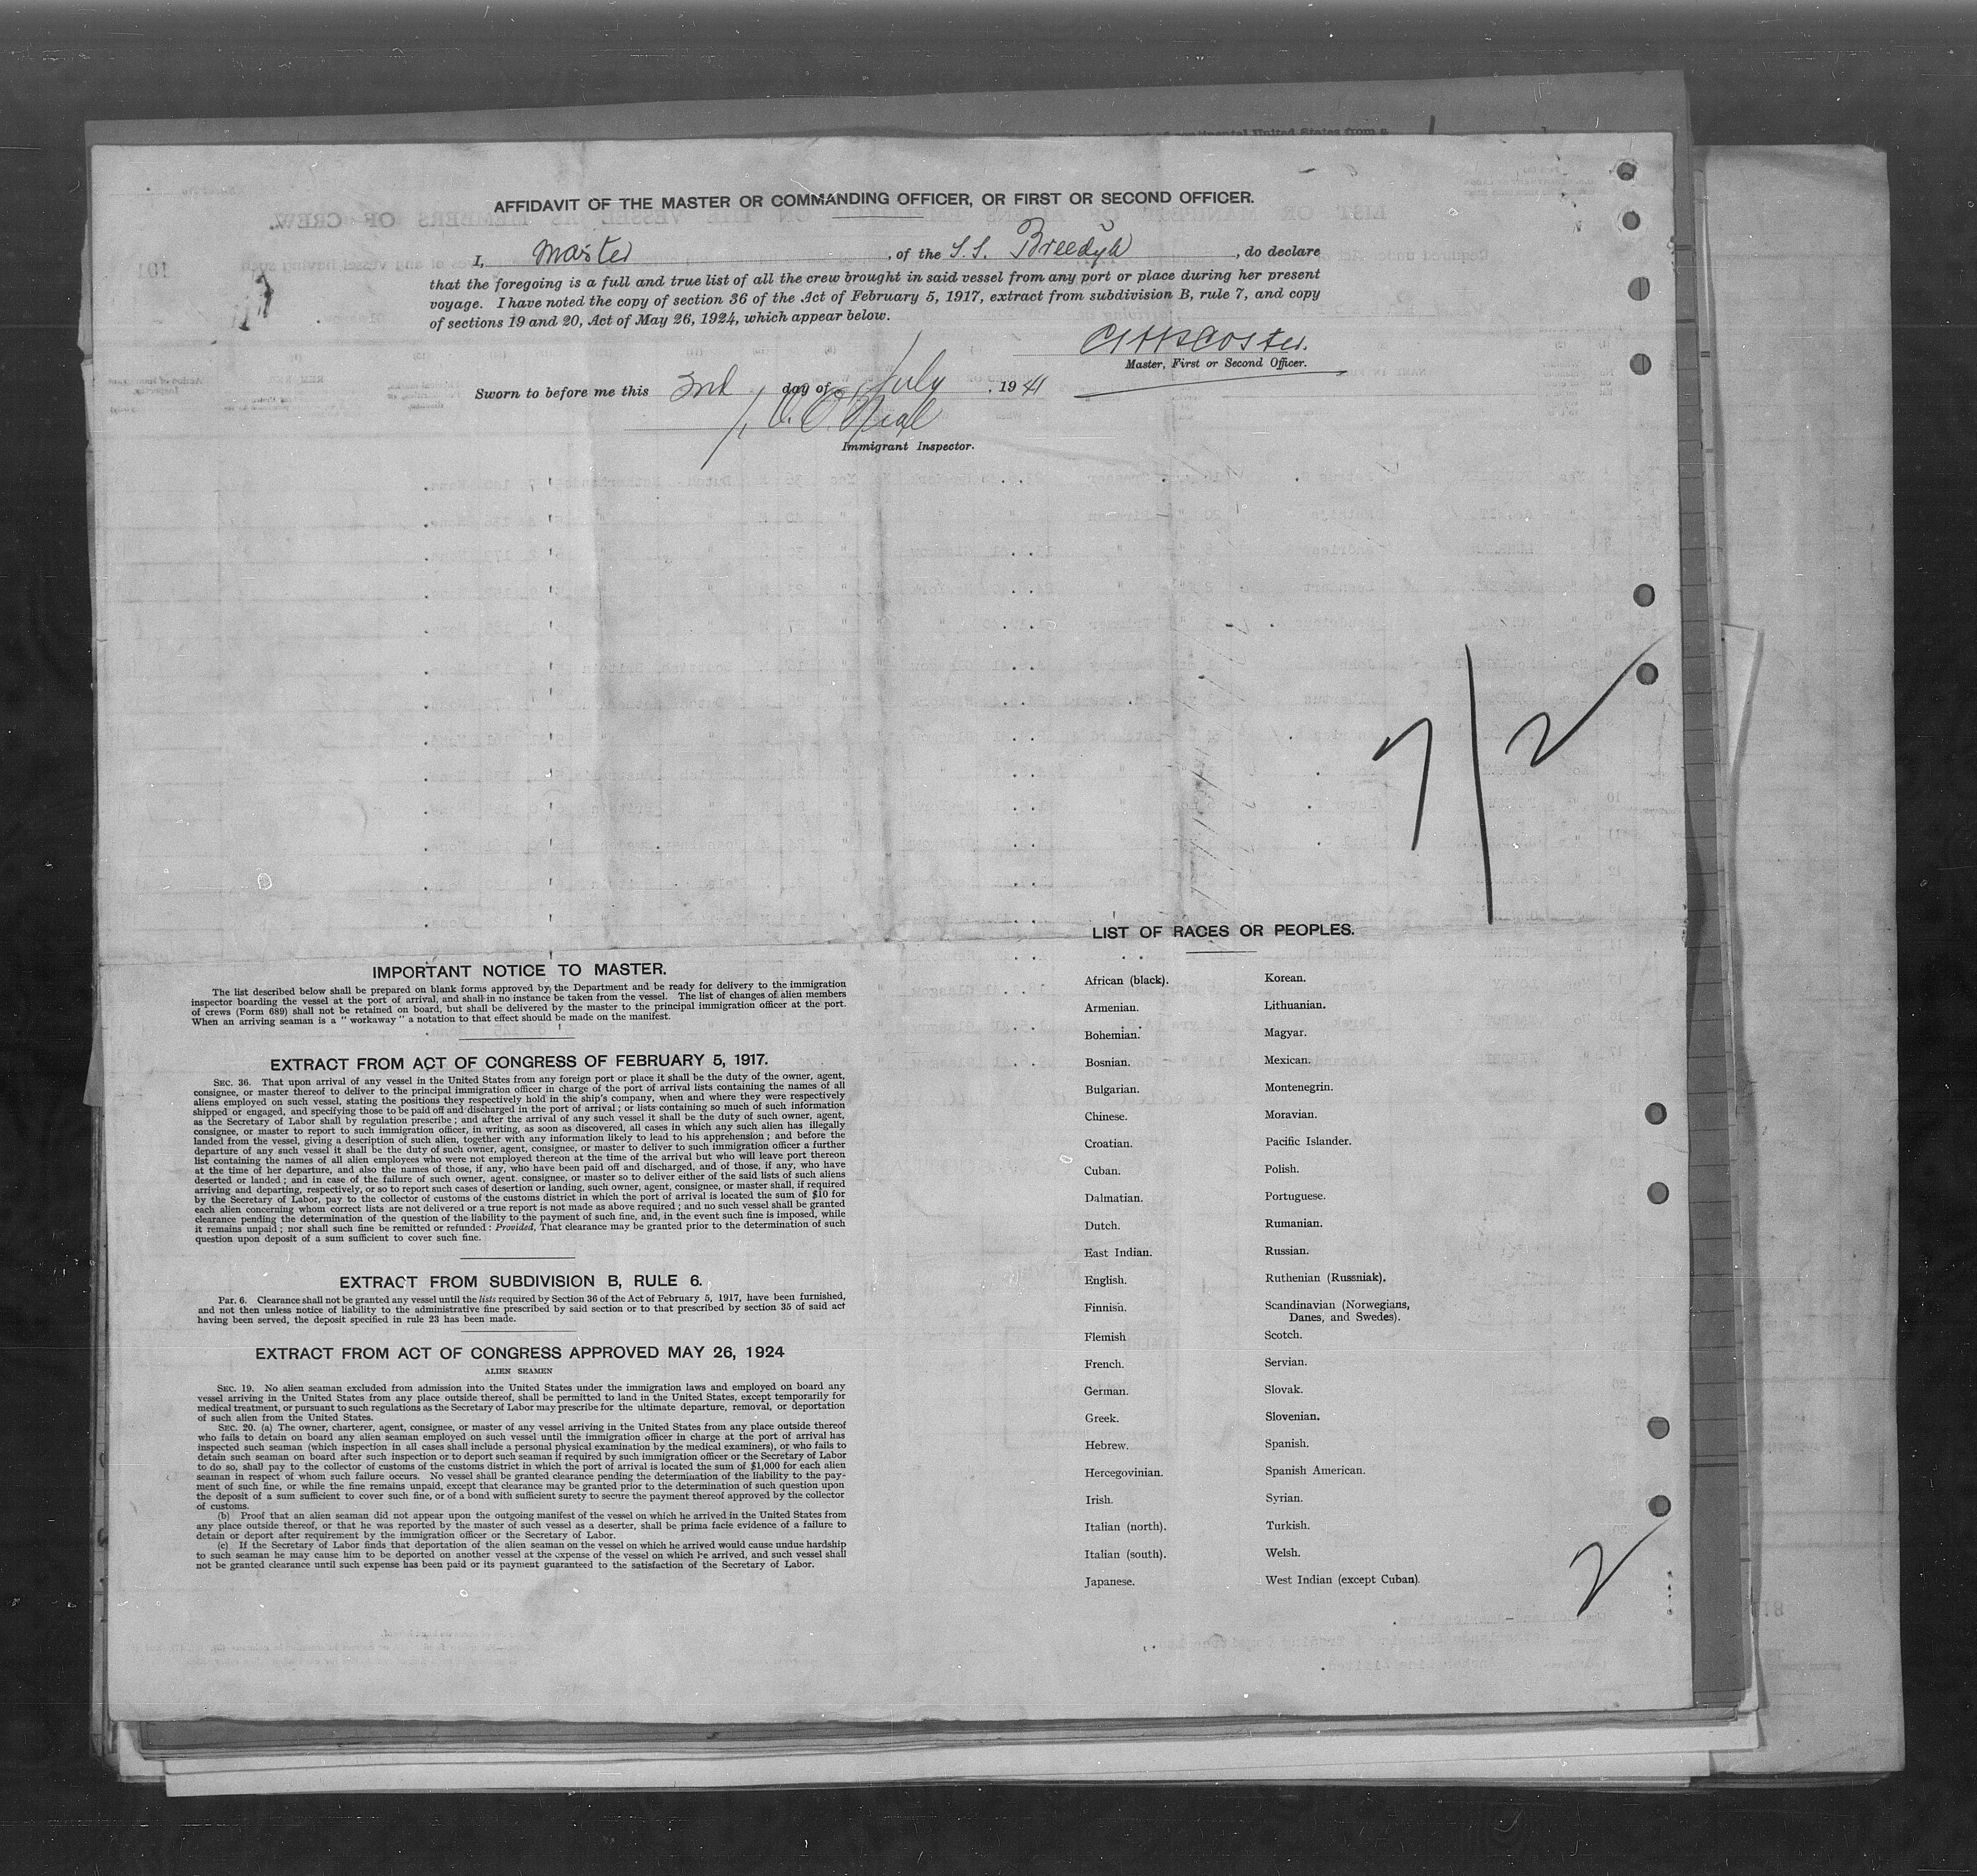 AFFIDAVIT OF THE MASTER OR COMMANDING OFFICER, OR FIRST OR SECOND OFFICER.
I, Master, of the S.S. Breedÿk, do declare
that the foregoing is a full and true list of all the crew brought in said vessel from any port or place during her present
voyage. I have noted the copy of section 36 of the Act of February 5, 1917, extract from subdivision B, rule 7, and copy
of sections 19 and 20, Act of May 26, 1924, which appear below.
Master, First or Second Officer.
Sworn to before me this 3rd day of July, 1941
Immigrant Inspector.
7/2
IMPORTANT NOTICE TO MASTER.
The list described below shall be prepared on blank forms approved by the Department and be ready for delivery to the immigration
inspector boarding the vessel at the port of arrival, and shall in no instance be taken from the vessel. The list of changes of alien members
of crews (Form 689) shall not be retained on board, but shall be delivered by the master to the principal immigration officer at the port.
When an arriving seaman is a " workaway " a notation to that effect should be made on the manifest.
EXTRACT FROM ACT OF CONGRESS OF FEBRUARY 5, 1917.
SEC. 36. That upon arrival of any vessel in the United States from any foreign port or place it shall be the duty of the owner, agent,
consignee, or master thereof to deliver to the principal immigration officer in charge of the port of arrival lists containing the names of all
aliens employed on such vessel, stating the positions they respectively hold in the ship's company, when and where they were respectively
shipped or engaged, and specifying those to be paid off and discharged in the port of arrival; or lists containing so much of such information
as the Secretary of Labor shall by regulation prescribe; and after the arrival of any such vessel it shall be the duty of such owner, agent,
consignee, or master to report to such immigration officer, in writing, as soon as discovered, all cases in which any such alien has illegally
landed from the vessel, giving a description of such alien, together with any information likely to lead to his apprehension; and before the
departure of any such vessel it shall be the duty of such owner, agent, consignee, or master to deliver to such immigration officer a further
list containing the names of all alien employees who were not employed thereon at the time of the arrival but who will leave port thereon
at the time of her departure, and also the names of those, if any, who have been paid off and discharged, and of those, if any, who have
deserted or landed; and in case of the failure of such owner, agent. consignee, or master so to deliver either of the said lists of such aliens
arriving and departing, respectively, or so to report such cases of desertion or landing, such owner, agent, consignee, or master shall, if required
by the Secretary of Labor, pay to the collector of customs of the customs district in which the port of arrival is located the sum of $10 for
each alien concerning whom correct lists are not delivered or a true report is not made as above required; and no such vessel shall be granted
clearance pending the determination of the question of the liability to the payment of such fine, and, in the event such fine is imposed, while
it remains unpaid; nor shall such fine be remitted or refunded: Provided, That clearance may be granted prior to the determination of such
question upon deposit of a sum sufficient to cover such fine.
EXTRACT FROM SUBDIVISION B, RULE 6.
PAR. 6. Clearance shall not be granted any vessel until the lists required by Section 36 of the Act of February 5, 1917, have been furnished,
and not then unless notice of liability to the administrative fine prescribed by said section or to that prescribed by section 35 of said act
having been served, the deposit specified in rule 23 has been made.
EXTRACT FROM ACT OF CONGRESS APPROVED MAY 26, 1924
ALIEN SEAMEN
SEC. 19. No alien seaman excluded from admission into the United States under the immigration laws and employed on board any
vessel arriving in the United States from any place outside thereof, shall be permitted to land in the United States, except temporarily for
medical treatment, or pursuant to such regulations as the Secretary of Labor may prescribe for the ultimate departure, removal, or deportation
of such alien from the United States.
SEC. 20. (a) The owner, charterer, agent, consignee, or master of any vessel arriving in the United States from any place outside thereof
who fails to detain on board any alien seaman employed on such vessel until the immigration officer in charge at the port of arrival has
inspected such seaman (which inspection in all cases shall include a personal physical examination by the medical examiners), or who fails to
detain such seaman on board after such inspection or to deport such seaman if required by such immigration officer or the Secretary of Labor
to do so, shall pay to the collector of customs of the customs district in which the port of arrival is located the sum of $1,000 for each alien
seaman in respect of whom such failure occurs. No vessel shall be granted clearance pending the determination of the liability to the pay-
ment of such fine, or while the fine remains unpaid, except that clearance may be granted prior to the determination of such question upon
the deposit of a sum sufficient to cover such fine, or of a bond with sufficient surety to secure the payment thereof approved by the collector
of customs.
(b) Proof that an alien seaman did not appear upon the outgoing manifest of the vessel on which he arrived in the United States from
any place outside thereof, or that he was reported by the master of such vessel as a deserter, shall be prima facie evidence of a failure to
detain or deport after requirement by the immigration officer or the Secretary of Labor.
(c) If the Secretary of Labor finds that deportation of the alien seaman on the vessel on which he arrived would cause undue hardship
to such seaman he may cause him to be deported on another vessel at the expense of the vessel on which he arrived, and such vessel shall
not be granted clearance until such expense has been paid or its payment guaranteed to the satisfaction of the Secretary of Labor.
LIST OF RACES OR PEOPLES.
African (black).
Armenian.
Bohemian.
Bosnian.
Bulgarian.
Chinese.
Croatian.
Cuban.
Dalmatian.
Dutch.
East Indian.
English.
Finnish.
Flemish
French.
German.
Greek.
Hebrew.
Hercegovinian.
Irish.
Italian (north).
Italian (south).
Japanese.
Korean.
Lithuanian.
Magyar.
Mexican.
Montenegrin.
Moravian.
Pacific Islander.
Polish.
Portuguese.
Rumanian.
Russian.
Ruthenian (Russniak).
Scandinavian (Norwegians,
Danes, and Swedes).
Scotch.
Servian.
Slovak.
Slovenian.
Spanish.
Spanish American.
Syrian.
Turkish.
Welsh.
West Indian (except Cuban).
2